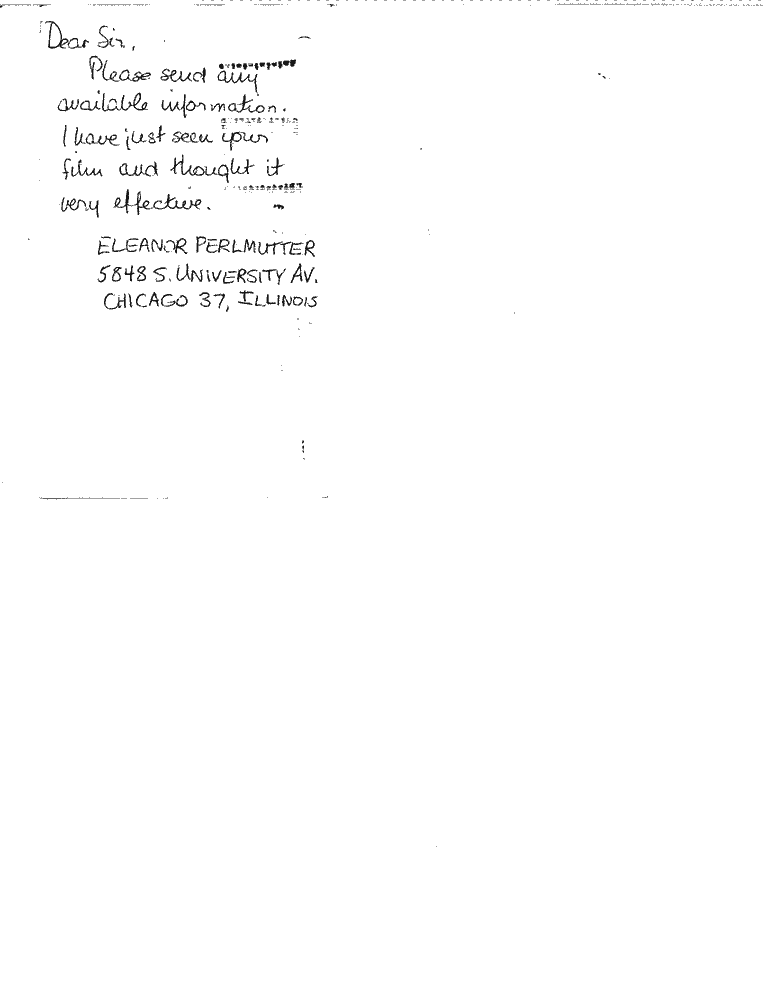 Dear Sir,
Please send any
available information.
I have just seen your
film and thought it
very effective.
ELEANOR PERLMUTTER
5848 S. UNIVERSITY AV.
CHICAGO 37, ILLINOIS